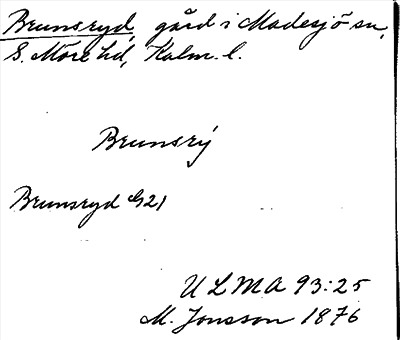 Brunsryd, gård i Madesjö sn,
S. Möre hd, Kalm. l.
Brunsrý
Brunsryd G21
U L M A 93:25
M. Jonsson 1876